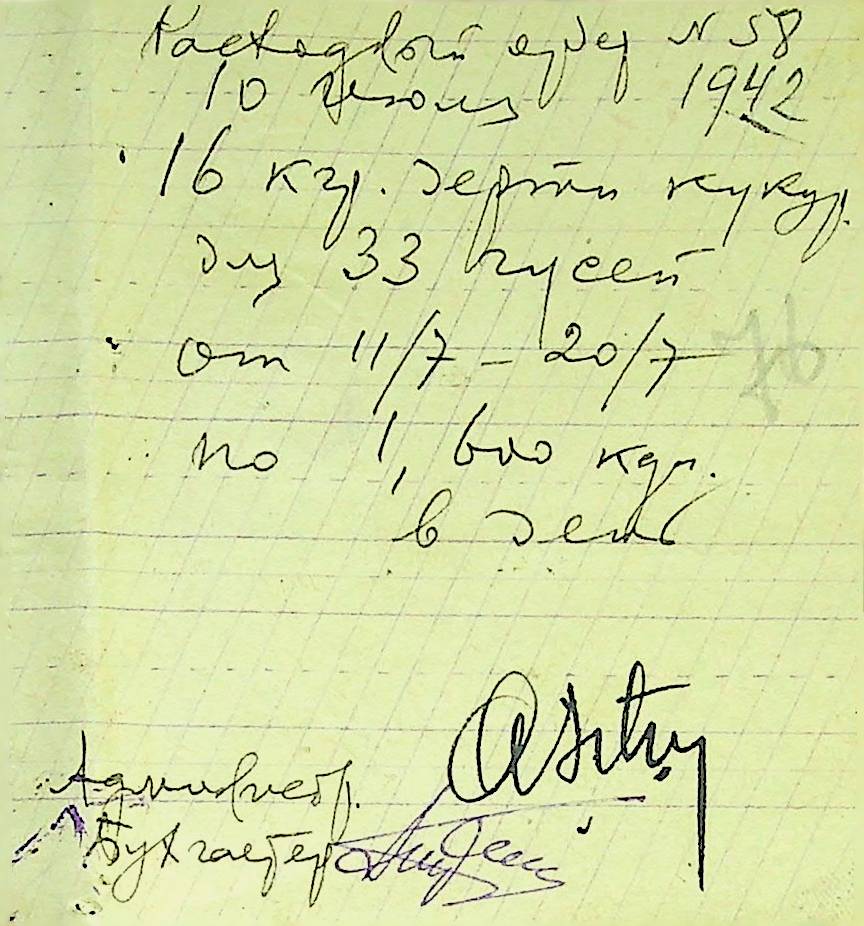 Расходовый ордер N 58
10 июля 1942
16 кгр. дерти кукур.
для 33 гусей
от 11/7 – 20/7
76
по 1,600 кгр.
в день
Администр.
Бухгалтер